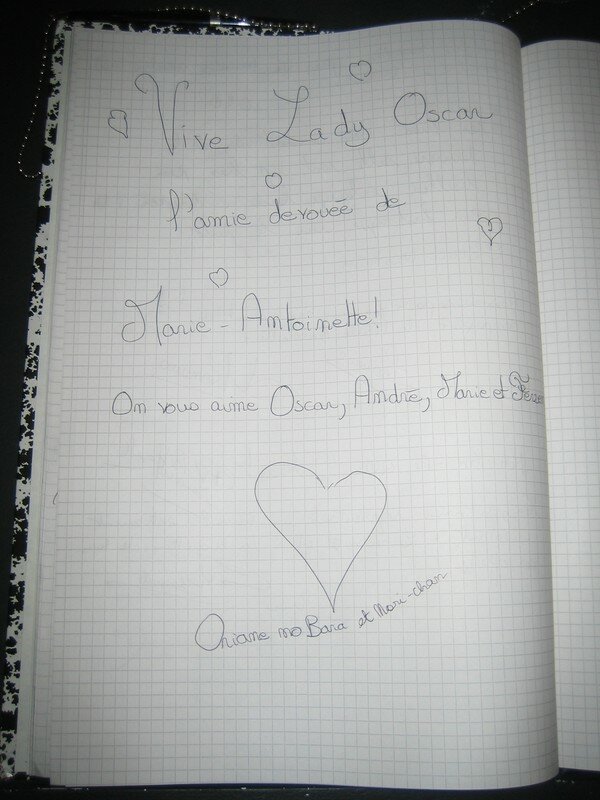 Vive Lady Oscar
l'amie devouée de
Marie-Antoinette!
On vous aime Oscar, André, Marie et
Oriane no Bara et Mari-chan